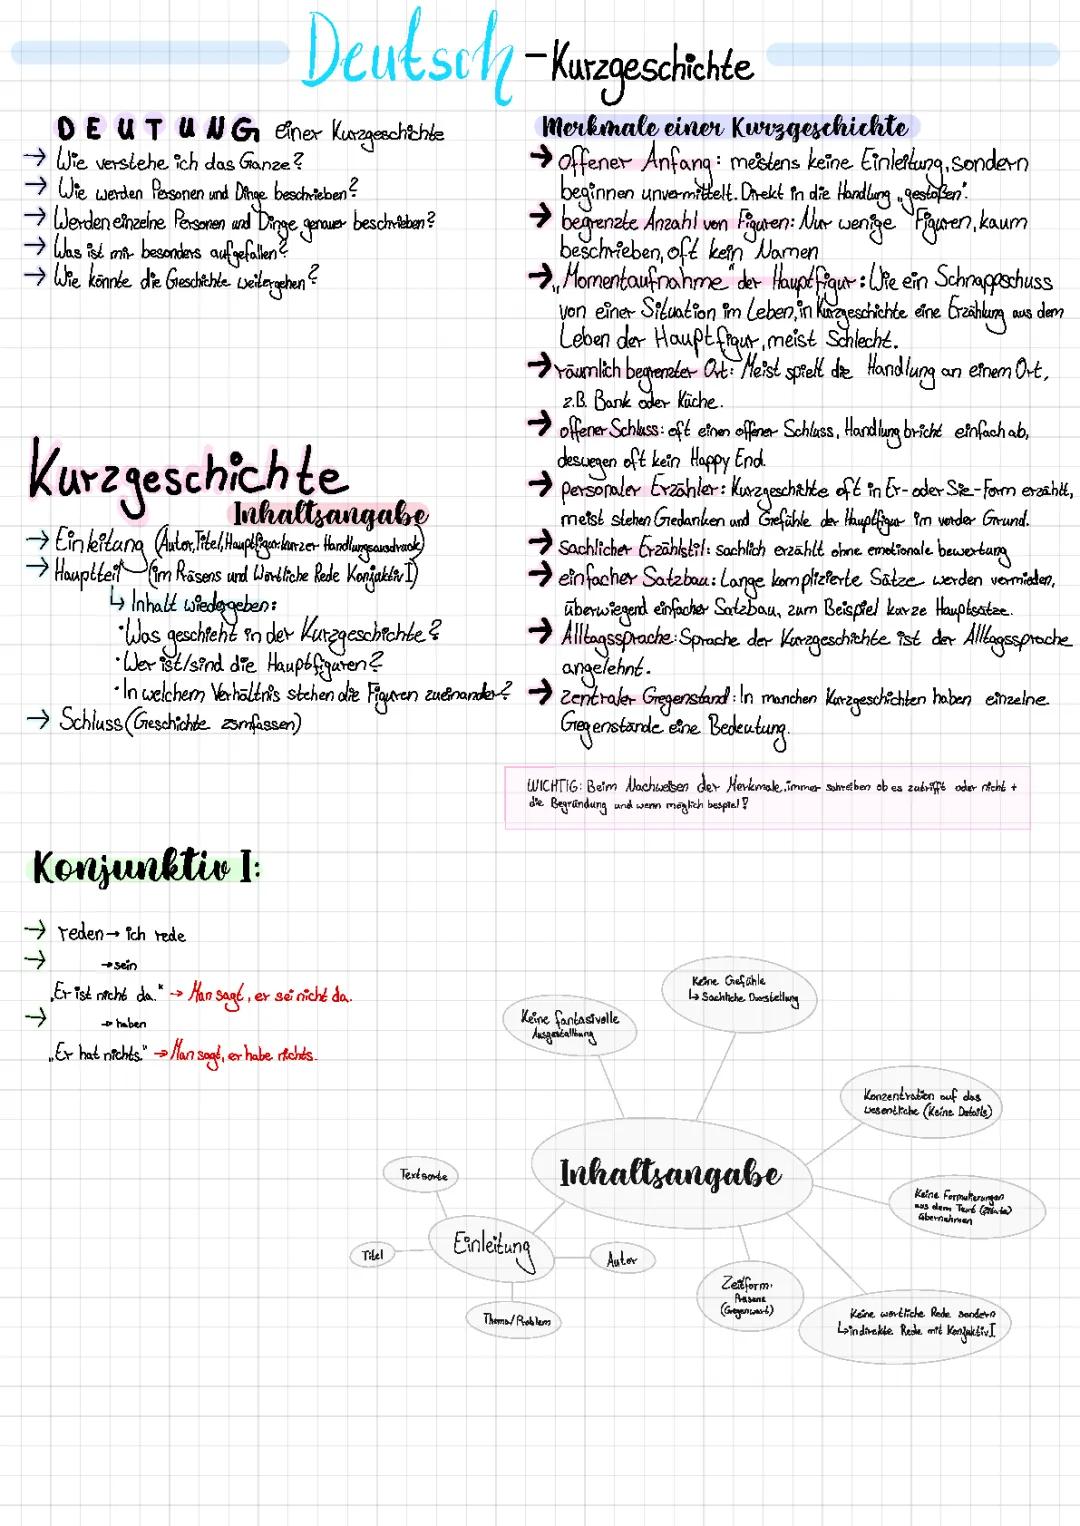 Deutsch - Kurzgeschichte
DEUTUNG einer Kurzgeschichte
→ Wie verstehe ich das Ganze?
→ Wie werden Personen und Dinge beschrieben?
→ Werden einzelne Personen und Dinge genauer beschrieben?
→ Was ist mir besonders aufgefallen?
→ Wie könnte die Geschichte weitergehen?
Merkmale einer Kurzgeschichte
→ offener Anfang: meistens keine Einleitung, sondern
beginnen unvermittelt. Direkt in die Handlung „gestoßen".
→ begrenzte Anzahl von Figuren: Nur wenige Figuren, kaum
beschrieben, oft kein Namen
→ „Momentaufnahme" der Hauptfigur: Wie ein Schnappschuss
von einer Situation im Leben, in Kurzgeschichte eine Erzählung aus dem
Leben der Hauptfigur, meist Schlecht.
→ räumlich begrenzter Ort: Meist spielt die Handlung an einem Ort,
z.B. Bank oder Küche.
→ offener Schluss: oft einen offener Schluss, Handlung bricht einfach ab,
deswegen oft kein Happy End.
→ personaler Erzähler: Kurzgeschichte oft in Er- oder Sie-Form erzählt,
meist stehen Gedanken und Gefühle der Hauptfigur im vorder Grund.
→ sachlicher Erzählstil: sachlich erzählt ohne emotionale bewertung
→ einfacher Satzbau: Lange komplizierte Sätze werden vermieden,
überwiegend einfacher Satzbau, zum Beispiel kurze Hauptsätze.
→ Alltagssprache: Sprache der Kurzgeschichte ist der Alltagssprache
angelehnt.
→ zentraler Gegenstand: In manchen Kurzgeschichten haben einzelne
Gegenstände eine Bedeutung.
WICHTIG: Beim Nachweisen der Merkmale, immer schreiben ob es zutrifft oder nicht +
die Begründung und wenn möglich bespiel!
Kurzgeschichte
Inhaltsangabe
→ Einleitung (Autor, Titel, Hauptfigur kurzer Handlungsausdruck)
→ Hauptteil (im Präsens und Wörtliche Rede Konjuktiv I)
↳ Inhalt wiedergeben:
· Was geschieht in der Kurzgeschichte?
· Wer ist/sind die Hauptfiguren?
· In welchem Verhältnis stehen die Figuren zueinander?
→ Schluss (Geschichte zsmfassen)
Konjunktiv I:
→ reden → ich rede
→ → sein
„Er ist nicht da." → Man sagt, er sei nicht da.
→ → haben
„Er hat nichts." → Man sagt, er habe nichts.
Keine Gefühle
↳ Sachliche Darstellung
Keine fantasivolle
Ausgestaltung
Konzentration auf das
wesentliche (Keine Details)
Inhaltsangabe
Textsorte
Keine Formulierungen
aus dem Text (Zitate)
übernehmen
Einleitung
Titel
Autor
Zeitform:
Präsens
(Gegenwart)
Thema/Problem
Keine wörtliche Rede sondern
↳ indirekte Rede mit Konjuktiv I